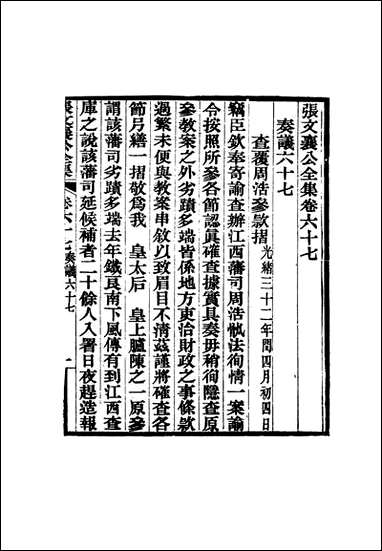 張文襄公全集卷六十七
奏議六十七
查覆周浩參款摺光緒三十二年閏四月初四日
竊臣欽奉寄諭查辦江西藩司周浩執法徇情一案諭
令按照所參各節認眞確查據實具奏毋稍徇隱查原
參教案之外劣蹟多端皆係地方吏治財政之事條款
過繁未便與教案串敘以致眉目不清茲謹將確查各
節另繕一摺敬爲我　皇太后　皇上臚陳之一原參
謂該藩司劣蹟多端去年鐵良南下風傳有到江西查
庫之說該藩司延候補者二十餘人入署日夜趕造報
張文襄公全集　卷六十七奏議六十七　一